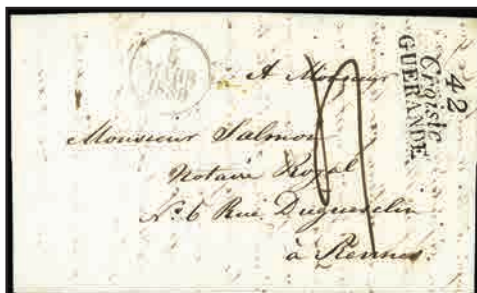 42
Croisic
GUERANDE
A Monsieur
Monsieur Salmon
Notaire Royal
N.º 6 Rue Duguesclin
à Rennes.